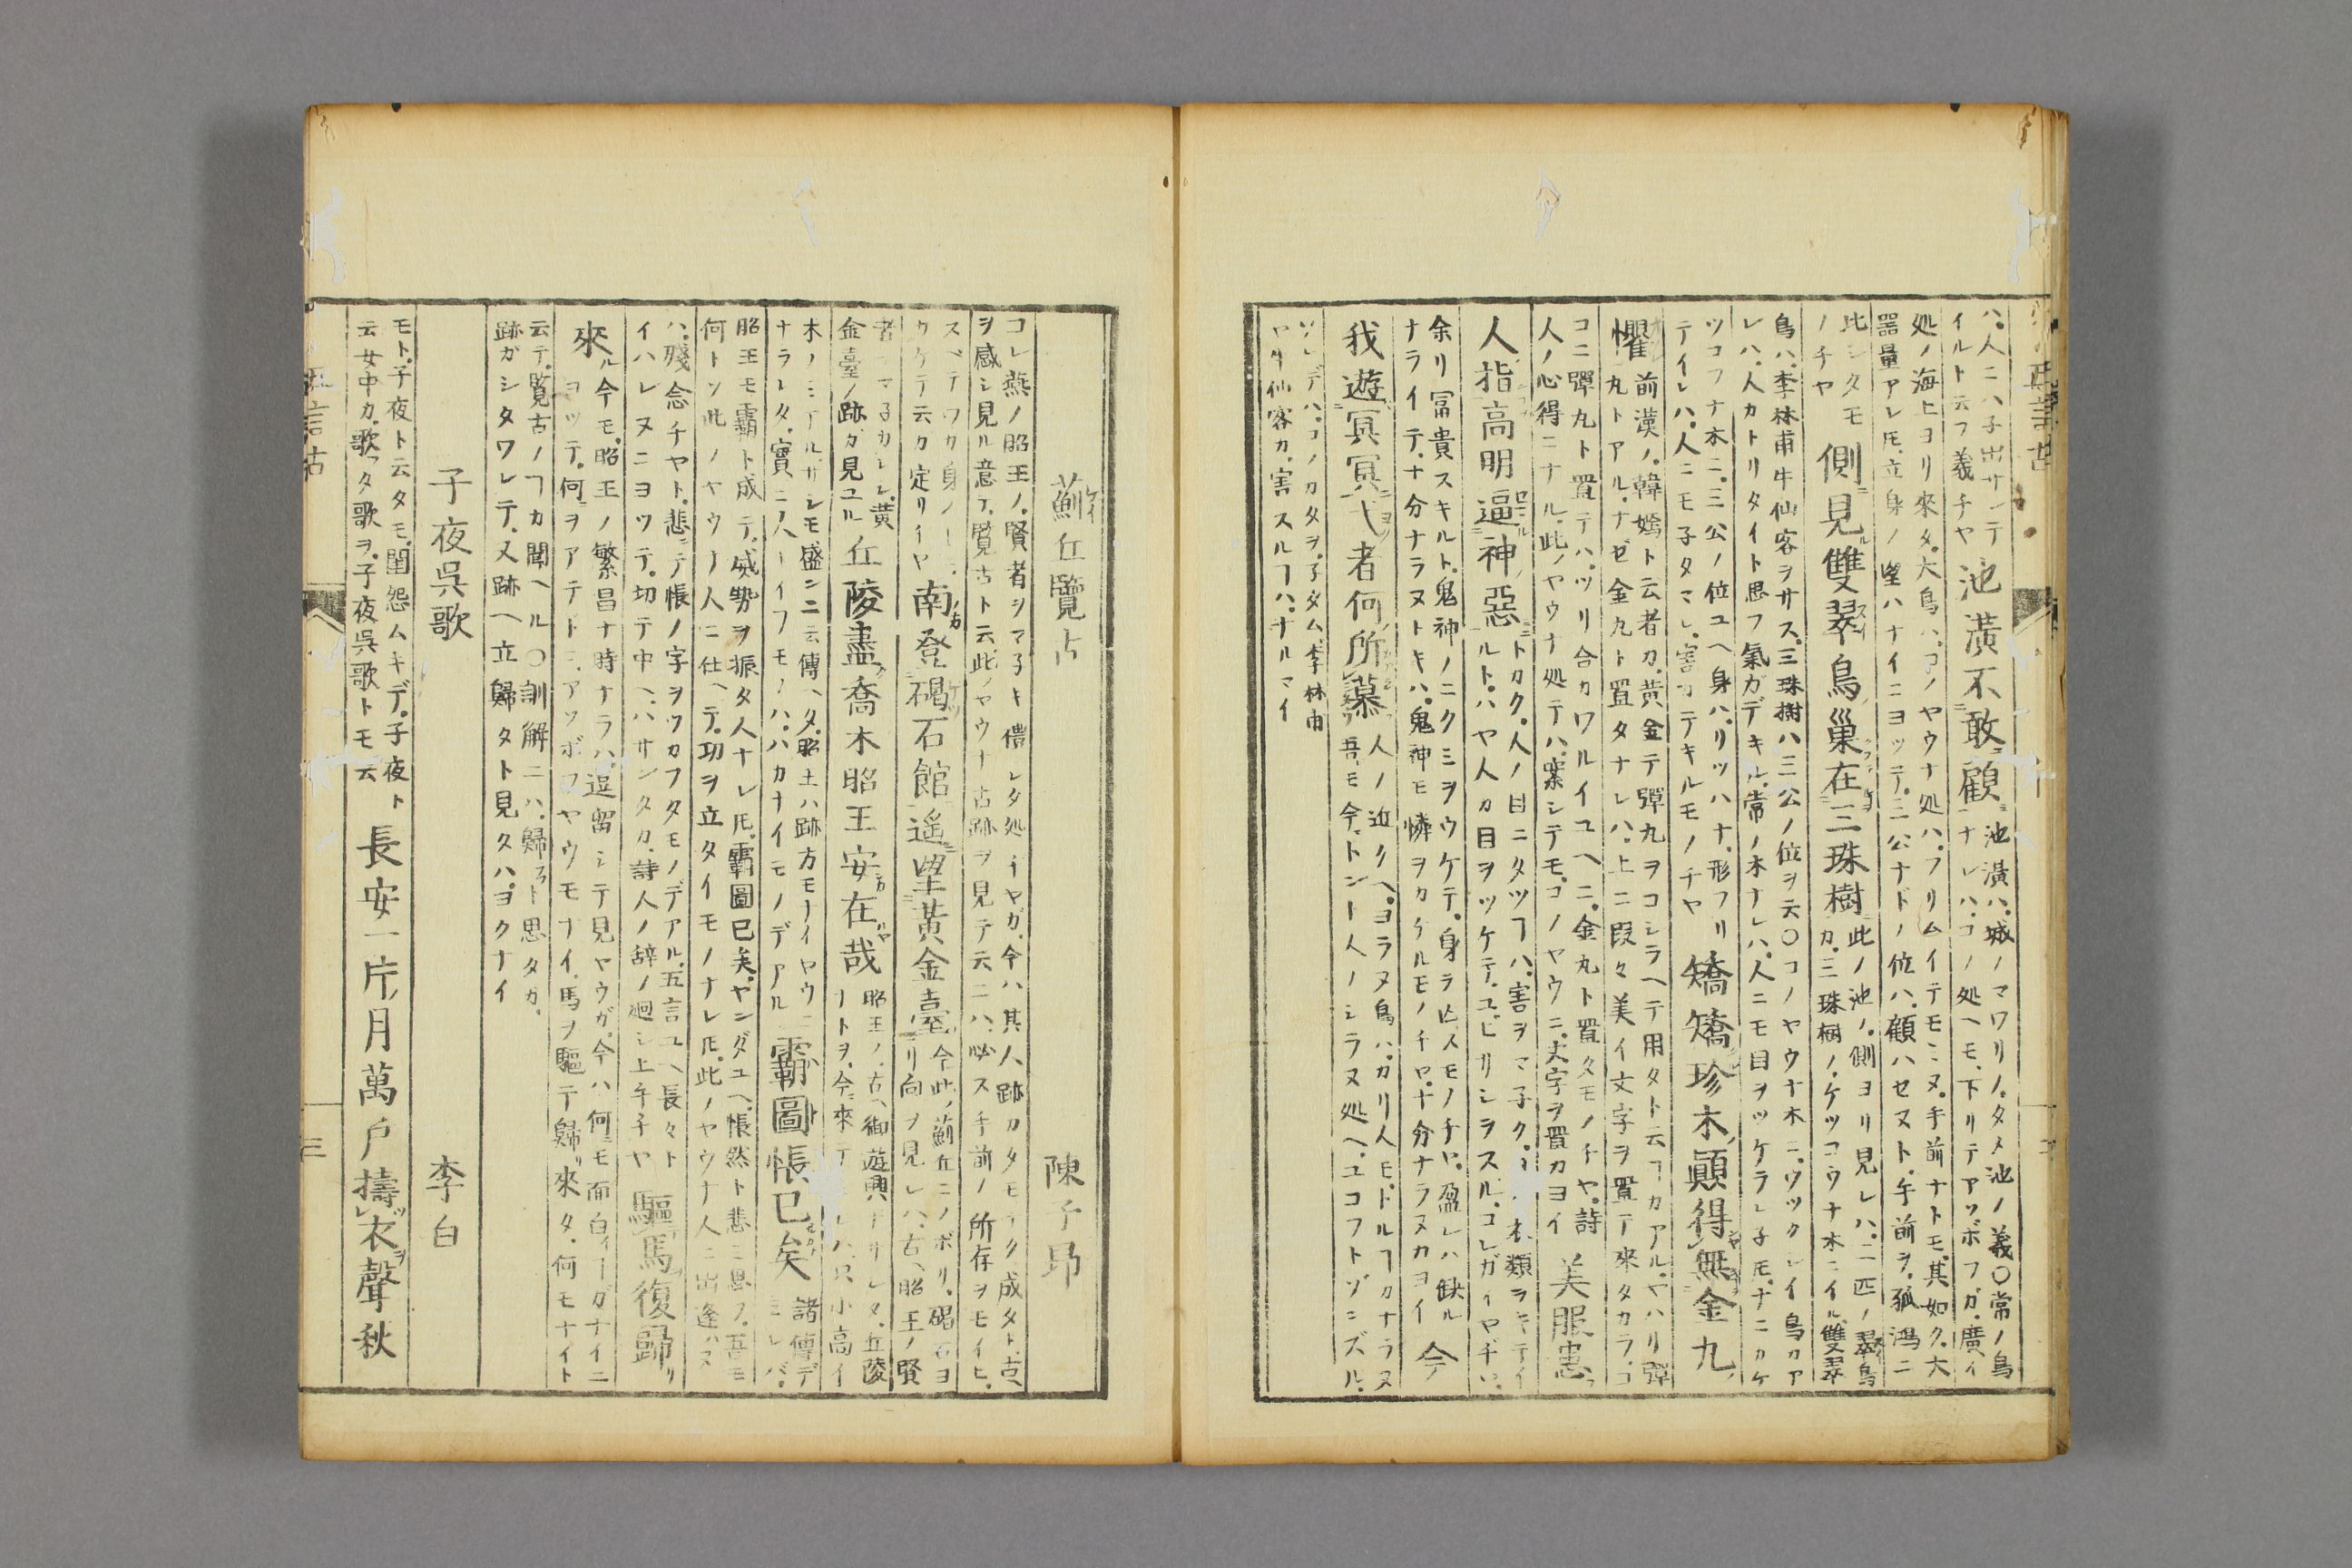 ハ人ニハ子出サシテ
イルト云フ義チヤ
池潢不敢顧
池潢ハ城ノマワリノタメ池ノ義〇常ノ鳥
ナレハコノ処ヘモ下リテアソボフガ廣イ
処ノ海上ヨリ來タ大鳥ハコノヤウナ処ハフリムイテモミヌ手前ナトモ其如ク大
器量アレ𪜈立身ノ望ハナイニヨツテ三公ナドノ位ハ顧ハセヌト午前ヲ孤鴻ニ
此シタモ
ノチヤ
側見雙翠鳥巢在三珠樹
此ノ池ノ側ヨリ見レハ二匹ノ翠鳥
カ三珠樹ノケツコウナ木ニイル雙翠
鳥ハ李林甫牛仙客ヲサス三珠樹ハ三公ノ位ヲ云〇コノヤウナ木ニウツクシイ鳥カア
レハ人カトリタイト思フ氣ガデキル常ノ木ナレハ人ニモ目ヲツケラレ子𪜈ナニカケ
ツコフナ木ニ三公ノ位ユヘ身ハリツハナ形フリ
テイレハ人ニモ子タマレ害カテキルモノチヤ
矯矯珍木顛得無金丸
懼
前漢ノ韓嫣ト云者カ黄金テ彈丸ヲコシラヘテ用タト云ヿカアルヤハリ彈
丸トアルナゼ金丸ト置タナレハ上ニ段々美イ文字ヲ置テ來タカラコ
コニ彈丸ト置テハツリ合カワルイユヘニ金丸ト置タモノチヤ詩
人ノ心得ニナル此ノヤウナ処テハ案シテモコノヤウニ文字ヲ置カヨイ
美服患
人指高明逼神惡
トカク人ノ目ニタツヿハ害ヲマ子ク
ルトハヤ人カ目ヲツケテユビサシヲスルコレガイヤチヤ
余リ冨貴スキルト鬼神ノニクミヲウケテ身ヲ亡スモノチヤ盈レハ缺ル
ナライテ十分ナラヌトキハ鬼神モ憐ヲカケルモノチヤ十分ナラヌカヨイ
今
我遊冥冥弋者何所慕
人ノ近クヘヨラヌ鳥ハカリ人モトルヿカナラヌ
吾モ今トント人ノシラヌ処ヘユコフトゾンズル
ソレデハコノカタヲ子タム李林甫
ヤ牛仙客カ害スルヿハナルマイ
薊丘覽古
陳子昂
コレ燕ノ昭王ノ賢者ヲマ子キ借レタ処チヤガ今ハ其人跡カタモナク成タト古
ヲ感シ見ル意テ覽古ト云此ノヤウナ古跡ヲ見テ云ニハ必ス手前ノ所存ヲモイヒ
スベテワカ身ノ
ケテ云カ定リイヤ
南登碣石館遥望黃金臺
今此ノ薊丘ニノボリ碣石ヨ
リ向ヲ見レハ古ヘ昭王ノ賢
者ヲマ子カレシ黄
金臺ノ跡カ見ユル
丘陵盡喬木昭王安在哉
昭王ノ古ヘ御遊興ナサレタ丘陵
ナトヲ今來テミレハ只小高イ
木ノミデルサシモ盛ンニ云傳ヘタ昭王ハ跡方モナイヤウニ
ナラレタ實ニ人トイフモノハハカナイモノデアル
霸圖悵已矣
諸傳デミレバ
昭王モ霸ト成テ威勢ヲ振タ人ナレ𪜈霸圖已矣ヤンダユヘ悵然ト悲ミ思フ吾モ
何トソ此ノヤウナ人ニ仕ヘテ功ヲ立タイモノナレ𪜈此ノヤウナ人ニ出逢ハヌ
ハ殘念チヤト悲テ悵ノ字ヲツカフタモノデアル五言ユヘ長々ト
イハレヌニヨツテ切テ中ヘハサンタカ詩人ノ辞ノ廻シ上手チヤ
驅馬復歸
來
今モ昭王ノ繁昌ナ時ナラハ逗留シテ見ヤウガ今ハ何モ面白イヿガナイニ
ヨツテ何ヲアテトシアソボフヤウモナイ馬ヲ驅テ歸リ來タ何モナイト
云テ覽古ノヿカ聞ヘル〇訓解ニハ歸フト思タガ
跡ガシタワレテ又跡ヘ立歸タト見タハヨクナイ
子夜吳歌
李白
モト子夜ト云タモ閨怨ムキデ子夜ト
云女中カ歌フタ歌ヲ子夜吳歌トモ云
長安一片月萬戸擣衣聲秋
三